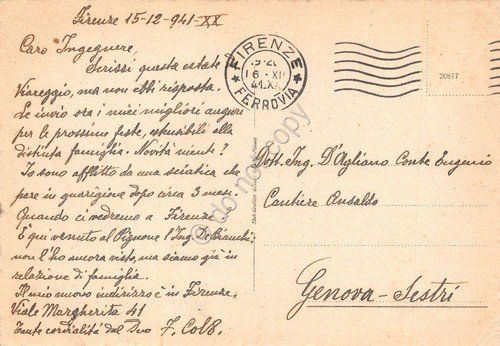 Firenze 15-12-941-XX
Caro Ingegnere,
Scrissi questa estate a
Viareggio, ma non ebbi risposta.
Le invio ora i miei migliori auguri
per le prossime feste, estensibili alla
distinta famiglia. Novità niente?
Io sono afflitto da una sciatica che
pare in guarigione dopo circa 3 mesi.
Quando ci vedremo a Firenze?
È qui venuto al Pignone l'Ing. De Bianchi;
non l'ho ancora visto, ma siamo già in
relazione di famiglia.
Il mio nuovo indirizzo è in Firenze,
Viale Margherita 41
Tante cordialità dal Suo
FIRENZE
FERROVIA
16 XII
41.XX
20877
Dott. Ing. D'Agliano Conte Eugenio
Cantiere Ansaldo
Genova-Sestri
do not copy